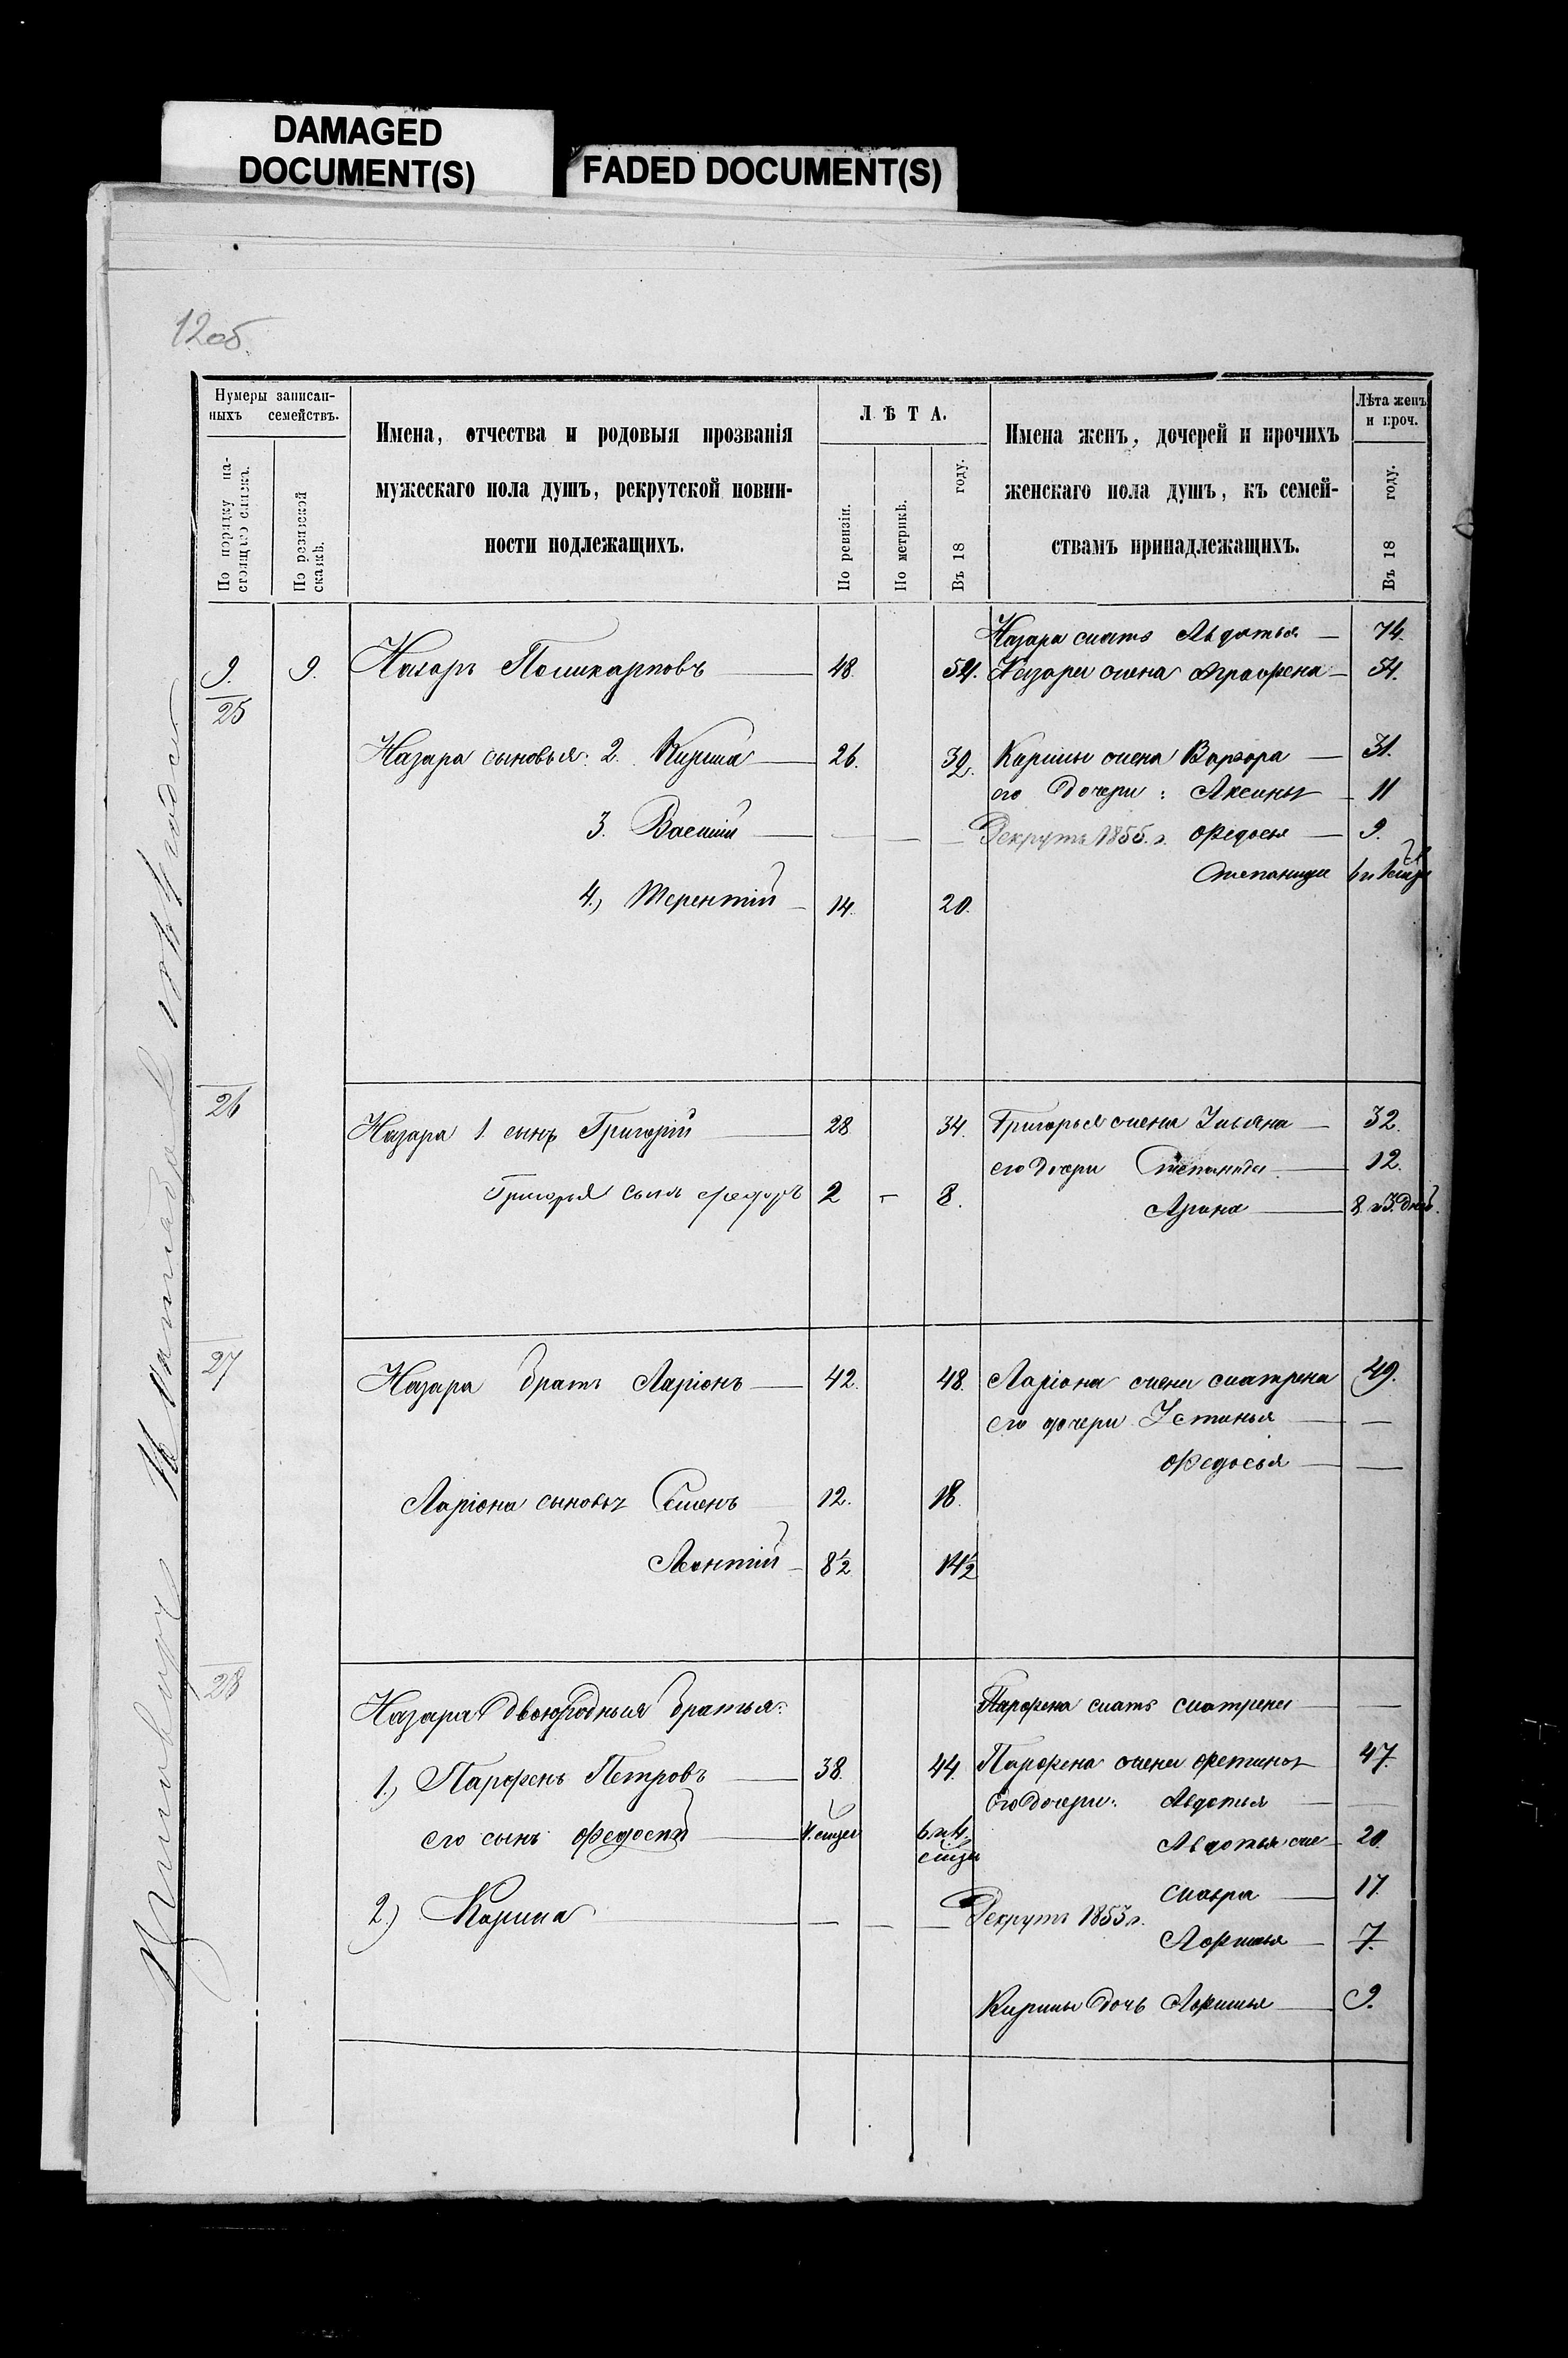 DAMAGED
DOCUMENT(S)
FADED DOCUMENT(S)
12об.
Нумеры записан-
ныхъ семействъ.
По порядку на-
стоящаго списка.
По ревизской
сказкѣ.
Имена, отчества и родовыя прозванія
мужескаго пола душъ, рекрутской повин-
ности подлежащихъ.
ЛѢТА.
По ревизіи.
По метрикѣ.
Въ 18 году.
Имена женъ, дочерей и прочихъ
женскаго пола душъ, къ семей-
ствамъ принадлежащихъ.
Лѣта женъ
и проч.
Въ 18 году.
Назара мать Авдотья — 74.
9. 9. Назаръ Поликарповъ — 48. 54. Назара жена Аграфена — 54.
25
Назара сыновья: 2. Кирила — 26. 32. Кирилы жена Варвара — 31.
его дочери: Аксинья — 11
3. Василій — — — — Рекрутъ 1855. г. Федосья — 9.
Степанида 6 и
4.) Терентій — 14. 20.
26
Назара 1. сынъ Григорій — 28 34. Григорья жена Ульяна — 32.
его дочери Степанида — 12.
Григорья сынъ Федоръ 2 — 8.
Арина — 8. и 3. дней.
27
Назара братъ Ларіонъ — 42. 48. Ларіона жена Матрена 49.
его дочери Устинья — —
Федосья — —
Ларіона сыновья Семенъ 12. 18.
Леонтій — 8½ 14½
28
Назара двоюродныя братья:
Парфена мать Матрена — —
1.) Парфенъ Петровъ — 38. 44. Парфена жена Фетинья 47.
Его дочери: Авдотья — —
его сынъ Федосей — 4. мѣсец 6. и 4. мѣсец
Авдотья же — 20.
Мавра — 17.
2.) Кирила — — — — Рекрутъ 1853 г.
Афимья — 7.
Кирилы дочь Афимья — 9.